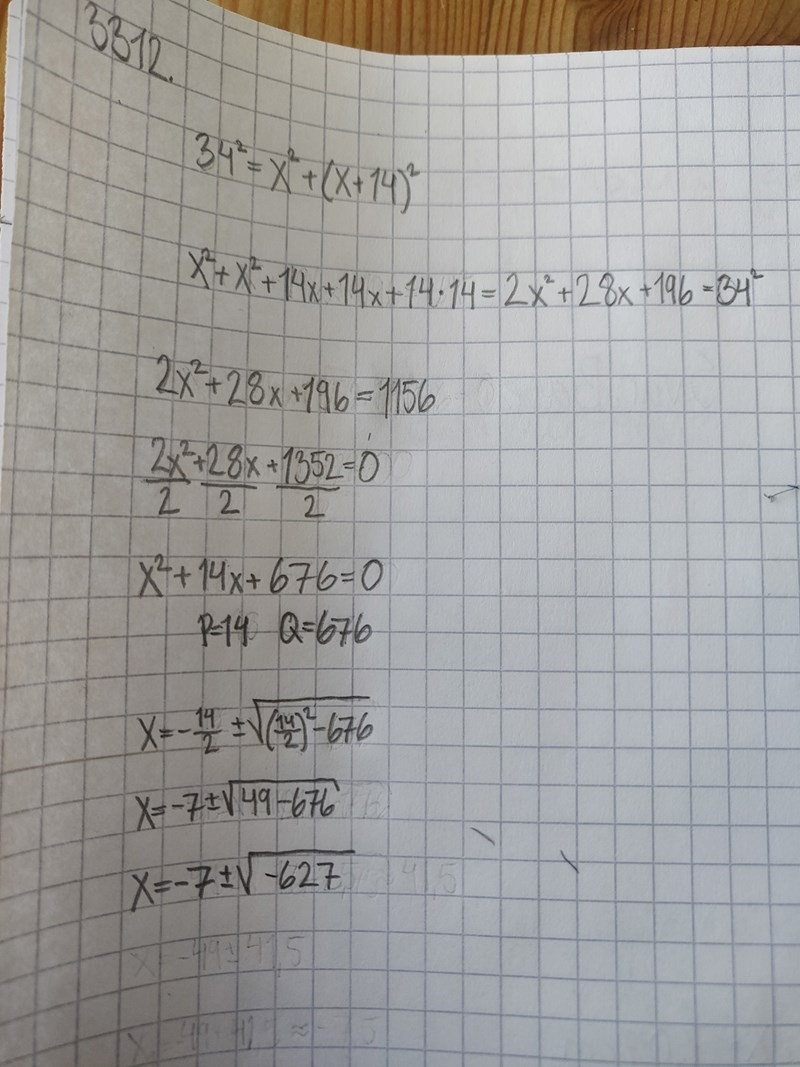 3312.
34² = x² + (x+14)²
x² + x² + 14x + 14x + 14·14 = 2x² + 28x + 196 = 34²
2x² + 28x + 196 = 1156
2x²/2 + 28x/2 + 1352/2 = 0
x² + 14x + 676 = 0
P=14 Q=676
x = -14/2 ± √((14/2)² - 676)
x = -7 ± √(49 - 676)
x = -7 ± √(-627)